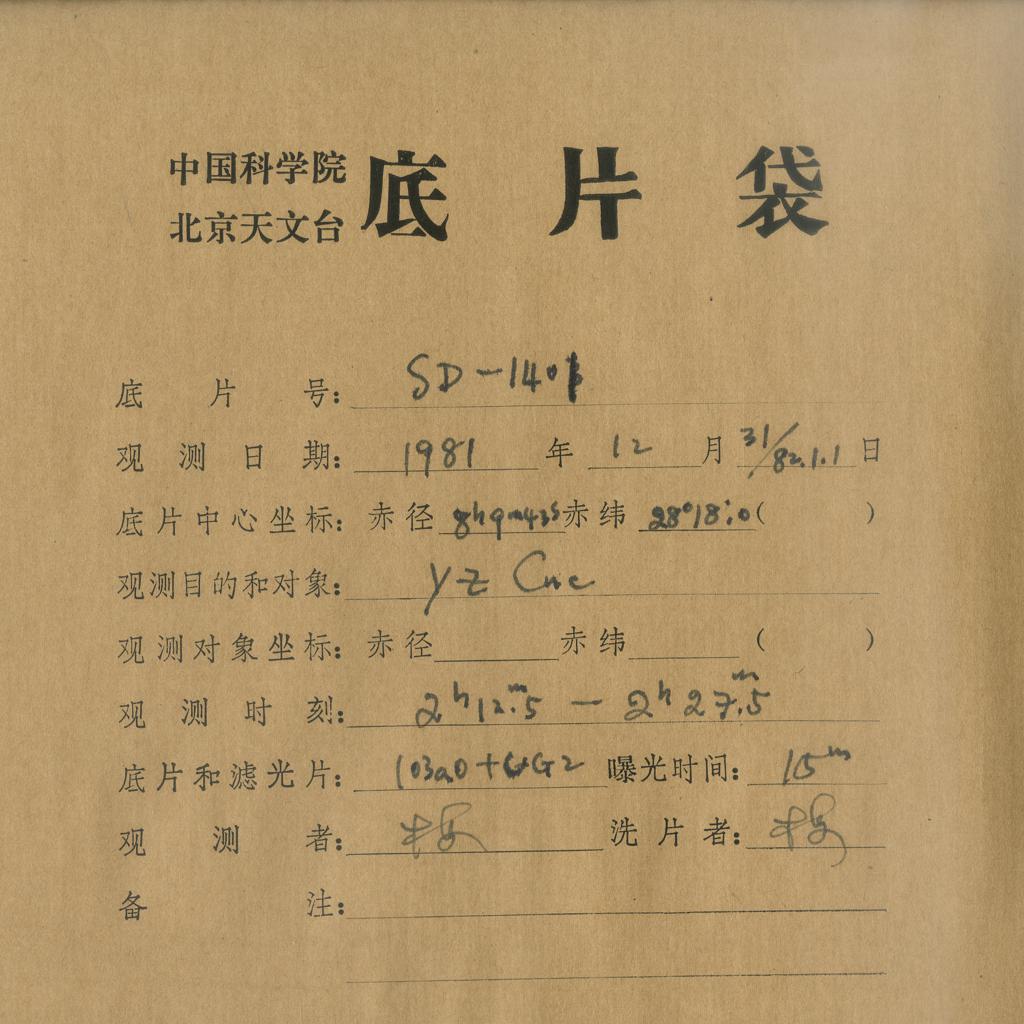 中国科学院
北京天文台
底片袋
底片号: SD-1401
观测日期: 1981 年 12 月 31/82.1.1 日
底片中心坐标: 赤径 8h9m43s 赤纬 28°18'.0 ( )
观测目的和对象: YZ Cnc
观测对象坐标: 赤径 赤纬 ( )
观测时刻: 2h12m.5 — 2h27m.5
底片和滤光片: 103aO+GG2 曝光时间: 15m
观测者: 洗片者:
备注: